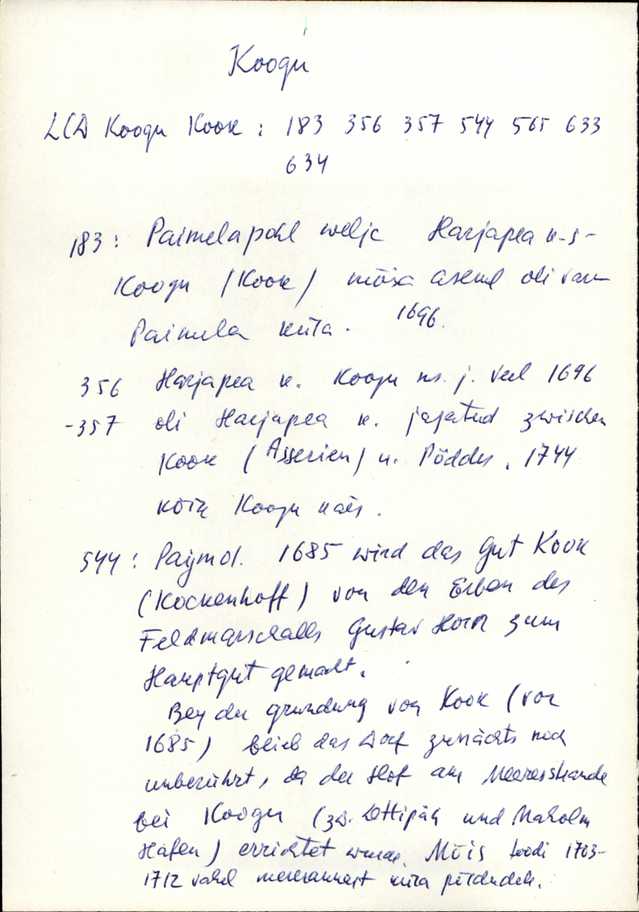 Koogu
LCD Koogu Kook : 183 356 357 544 565 633
634
183 : Paimelapohl welje Harjapea k-s-
Koogu (Kook) mõisa asend oli
Paimela küla. 1696.
356 Harjapea k. Koogu ms. j. veel 1696
-357 oli Harjapea k. jagatud zwischen
Kook (Asserien) u. Pöddes. 1744
kõik Koogu käes.
544 : Paymol. 1685 wird das Gut Kook
(Kockenhoff) von den Erben des
Feldmarschalls Gustav Horn zum
Hauptgut gemacht.
Bey der Gründung von Kook (vor
1685) blieb das Dorf zunächts noch
unberührt, da der Hof am Meeresstrande
bei Koogu (zw. Lettipäh und Maholm
Hafen) errichtet wurde. Mõis toodi 1703-
1712 vahel mereannast küla põldudele.